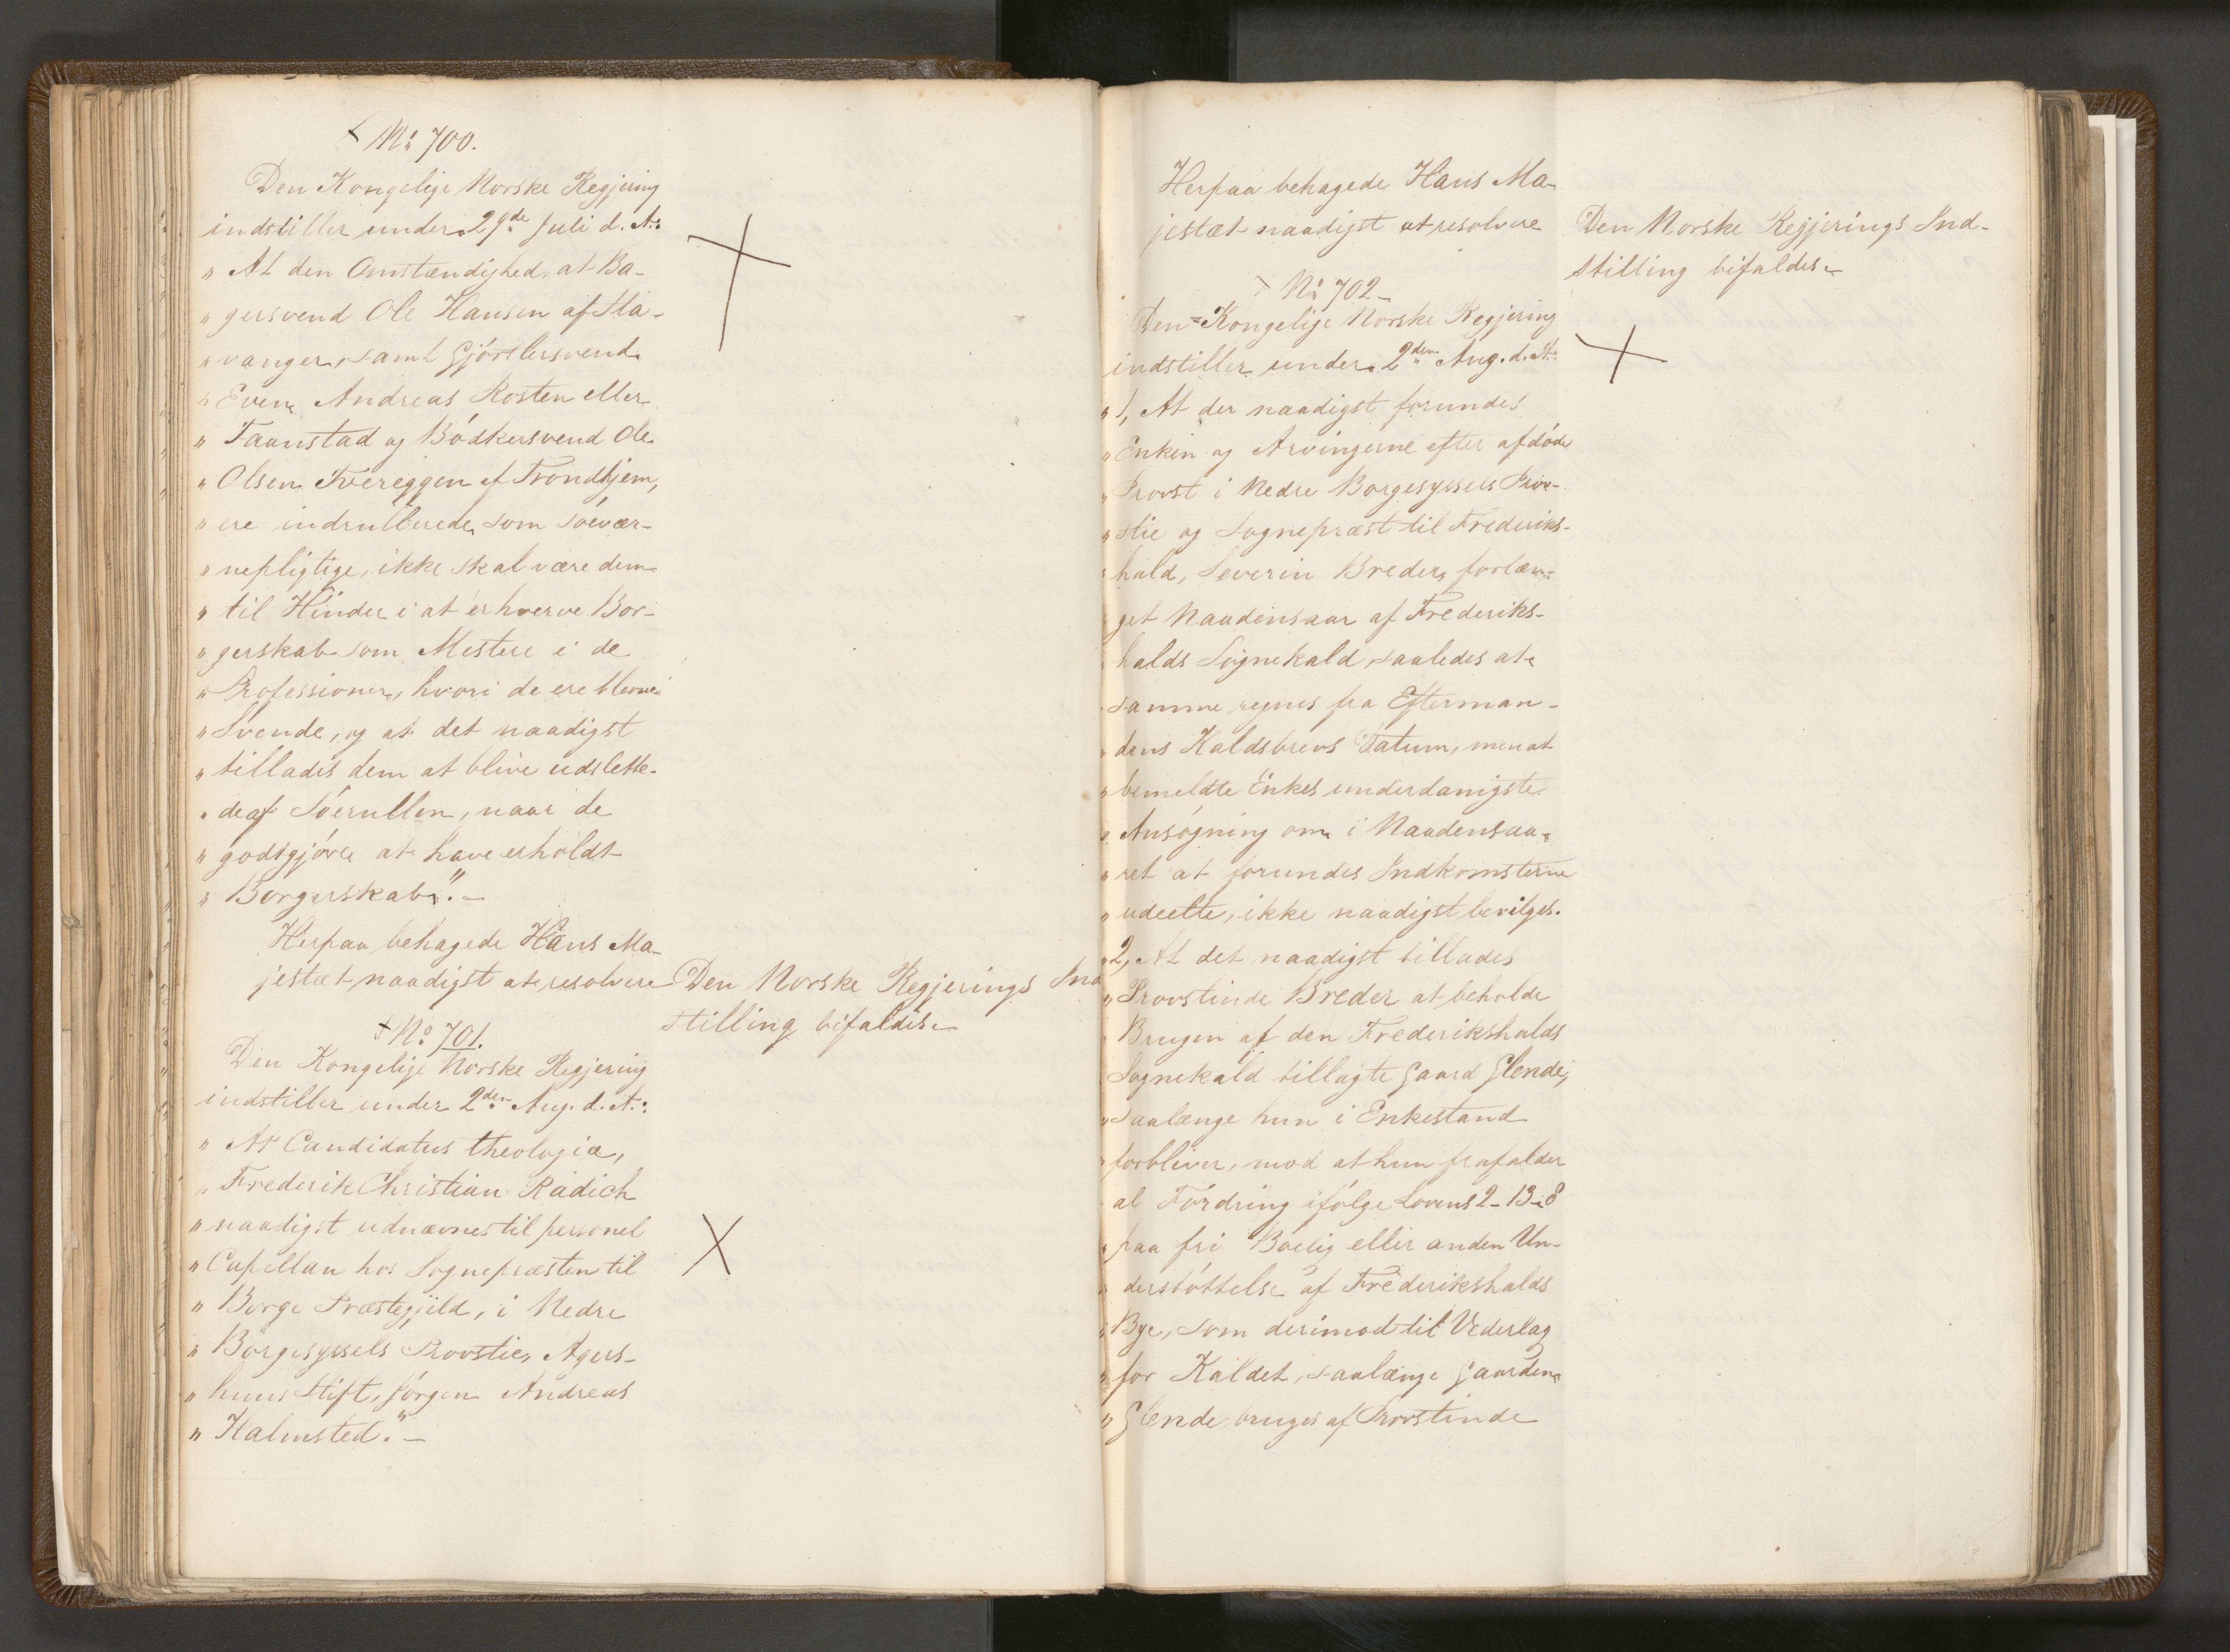 № 700.
Den Kongelige Norske Regjering
indstiller under 29de Juli d. A.:
" At den Omstændighed, at Ba-
" gersvend Ole Hansen af Sta-
" vanger, samt Gjörtlersvend
" Even Andreas Rosten eller
" Taanstad og Bödkersvend Ole
" Olsen Tvereggen af Trondhjem,
" ere indrullerede som Söevær-
" nepligtige, ikke skal være dem
" til Hinder i at erhverve Bor-
" gerskab som Mestere i de
" Professioner, hvori de ere blevne
" Svende, og at det naadigst
" tillades dem at blive udslette-
" de af Söerullen, naar de
" godtgjöre at have erholdt
" Borgerskab". -
Herpaa behagede Hans Ma-
jestæt naadigst at resolvere
Den Norske Regjerings Ind
stilling bifaldes.
№ 701.
Den Kongelige Norske Regjering
indstiller under 2den Aug. d. A.:
" At Candidatus theologiæ,
" Frederik Christian Radich
" naadigst udnævnes til personel
" Capellan hos Sognepræsten til
" Borge Præstegjeld, i Nedre
" Borgesyssels Provstie, Agers-
" huus Stift, Jörgen Andreas
" Halmsted." -
Herpaa behagede Hans Ma-
jestæt naadigst at resolvere
Den Norske Regjerings Ind-
stilling bifaldes.
№ 702
Den Kongelige Norske Regjering
indstiller under 2den Aug. d. A.:
" 1, At der naadigst forundes
" Enken og Arvingerne efter afdöde
" Provst i Nedre Borgesyssels Prov-
" stie og Sognepræst til Frederiks-
" hald, Severin Breder, forlæn-
" get Naadensaar af Frederiks-
" halds Sognekald, saaledes at
" samme regnes fra Efterman-
" dens Kaldsbrevs Datum, men at
" bemeldte Enkes underdanigste
" Ansögning om i Naadensaa-
" ret at forundes Indkomsterne
" udeelte, ikke naadigst bevilges.
" 2, At det naadigst tillades
" Provstinde Breder at beholde
" Brugen af den Frederikshalds
" Sognekald tillagte Gaard Glende,
" saalænge hun i Enkestand
" forbliver, mod at hun frafalder
" al Fordring ifölge Lovens 2-13-8
" paa fri Boelig eller anden Un-
" derstöttelse af Frederikshalds
" Bye, som derimod til Vederlag
" for Kaldet, saalænge Gaarden
" Glende bruges af Provstinde